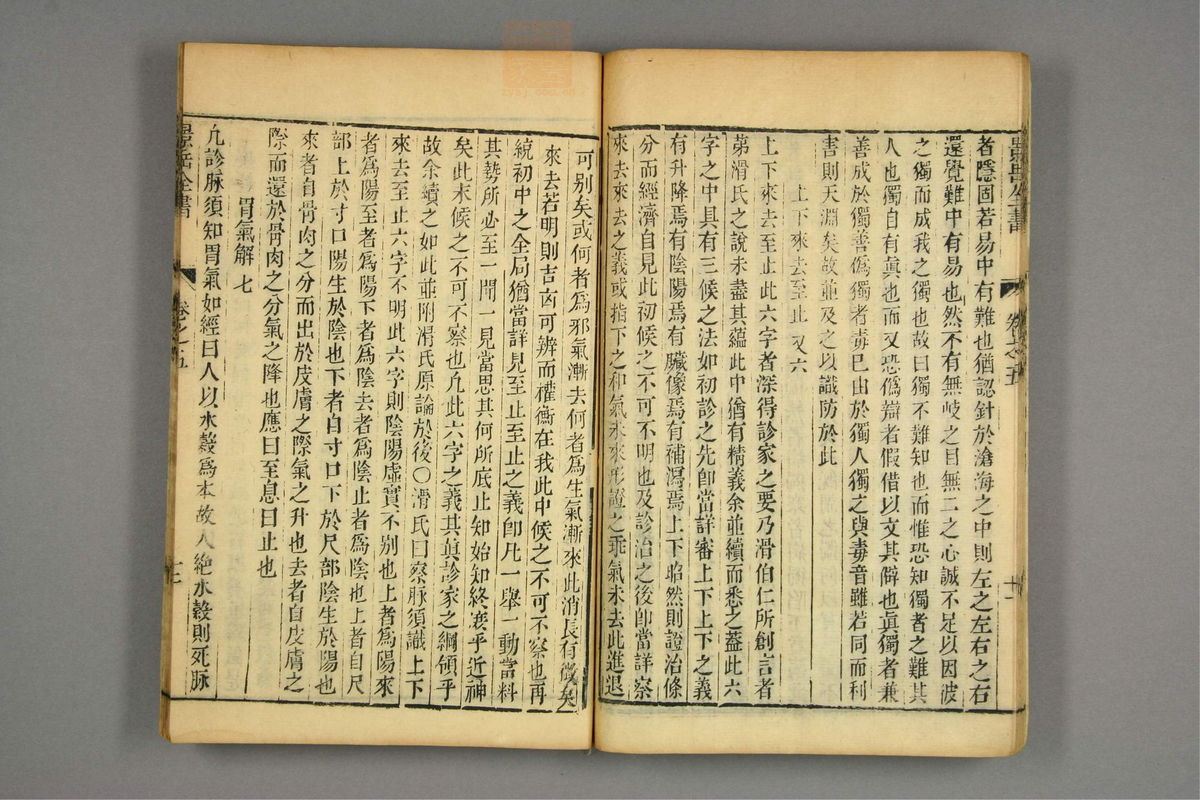 者隱固若易中有難也猶認針於滄海之中則左之左右之右
還覺難中有易也然不有無岐之目無二之心誠不足以因彼
之獨而成我之獨也故曰獨不難知也而惟恐知獨者之難其
人也獨自有眞也而又恐僞辯者假借以文其僻也眞獨者兼
善成於獨善僞獨者毒已由於獨人獨之與毒音雖若同而利
害則天淵矣故並及之以識防於此
上下來去至止 又六
上下來去至止此六字者深得診家之要乃滑伯仁所創言者
第滑氏之說未盡其蘊此中猶有精義余並續而悉之葢此六
字之中具有三候之法如初診之先卽當詳審上下上下之義
有升降焉有陰陽焉有臟像焉有補瀉焉上下昭然則證治條
分而經濟自見此初候之不可不明也及診治之後卽當詳察
來去來去之義或指下之和氣未來形證之乖氣未去此進退
可别矣或何者爲邪氣漸去何者爲生氣漸來此消長有徵矣
來去若明則吉凶可辨而權衡在我此中候之不可不察也再
統初中之全局猶當詳見至止至止之義卽凡一舉一動當料
其勢所必至一聞一見當思其何所底止知始知終褱乎近神
矣此末候之不可不察也凡此六字之義其眞診家之綱領乎
故余續之如此並附滑氏原論於後〇滑氏曰察脉須識上下
來去至止六字不明此六字則陰陽虛實不别也上者爲陽來
者爲陽至者爲陽下者爲陰去者爲陰止者爲陰也上者自尺
部上於寸口陽生於陰也下者自寸口下於尺部陰生於陽也
來者自骨肉之分而出於皮膚之際氣之升也去者自皮膚之
際而還於骨肉之分氣之降也應曰至息曰止也
胃氣解 七
凡診脉須知胃氣如經曰人以水穀爲本故人絕水穀則死脉
景岳全書 卷之五 十二